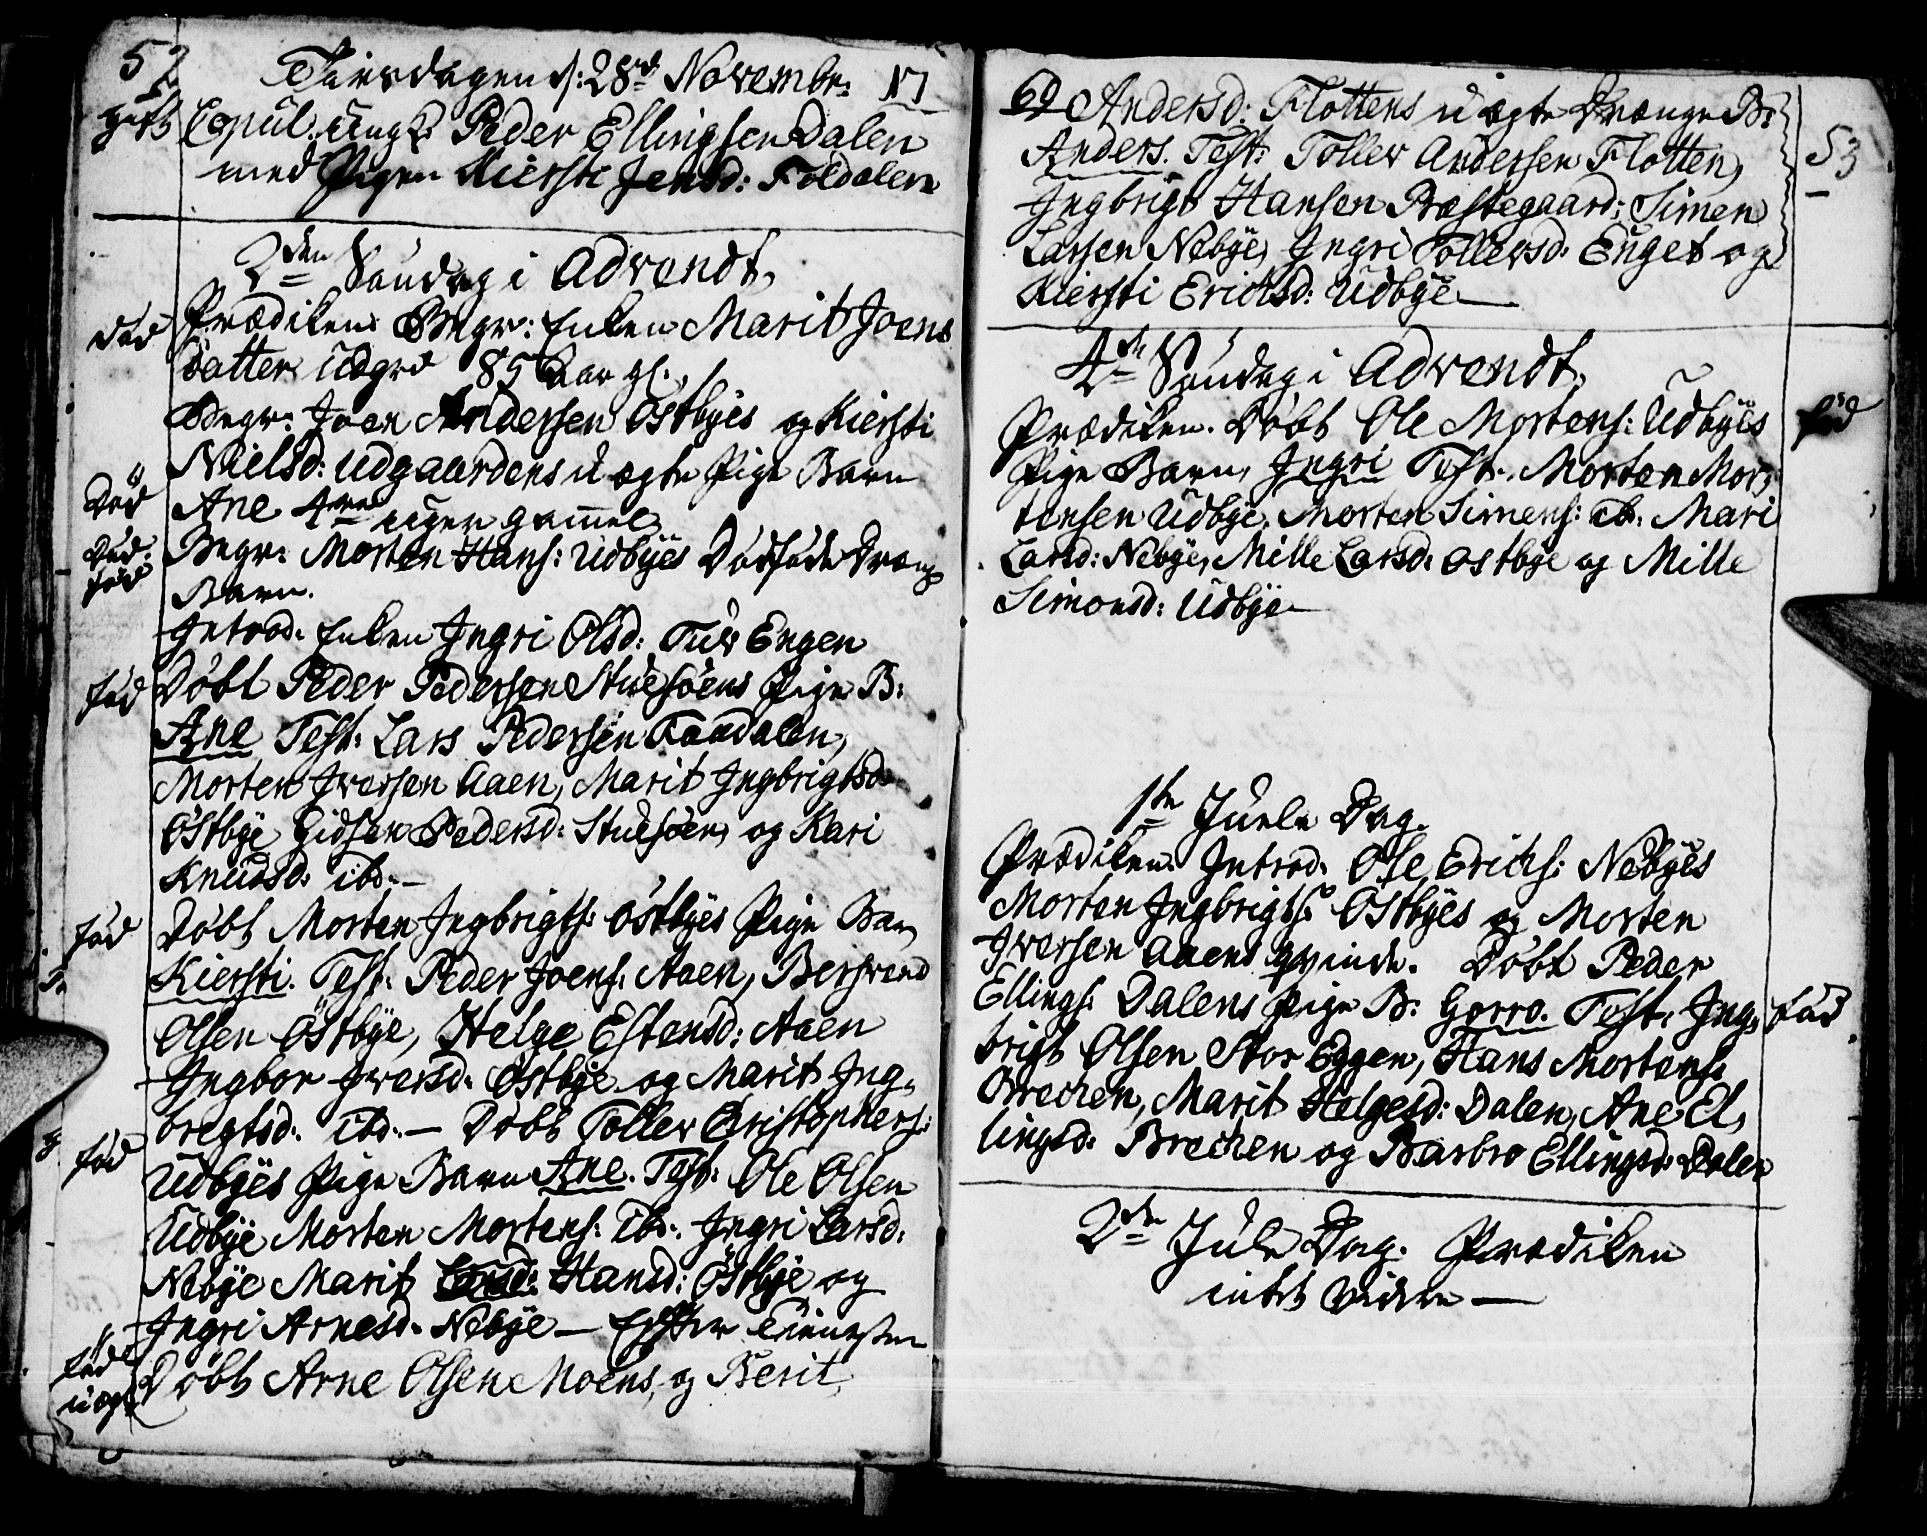 52
Tiirsdagen d: 28de Novembr: 17
gift Copul. ungk: Peder Ellingsen Dalen
med Pigen Kiersti Jensd: Foldalen
2den Søndag i Advendt,
død Prædiken Begr: Enken Marit Joens
datter Udgrd 85 Aar gl.
Begr: Joen Andersen Østbyes og Kiersti
Nielsd: Udgaardens u ægte Pige Barn
Død Ane 4re uger gammel
Død Begr: Morten Hans: Udbyes Dødføde Drænge
fød Barn.
Introd. Enken Ingri Olsd: Tuv Engen
fød Døbt Peder Pedersen Stuesøens Pige B:
Ane Test: Lars Pedersen Taadalen,
Morten Iversen Aaen, Marit Ingbrigtsd:
Østbye Gidsen Pedersd: Stuesøen, og Kari
Knudsd: ibd.—
fød Døbt Morten Ingbrigts: Østbyes Pige Bar,
Kiersti. Test: Peder Joens: Aaen, Bersvend
Olsen Østbye, Helge Estensd: Aaen
Ingbor Iversd: Østbye og Marit Ing,
bregtsd: ibd.— Døbt Toller Christophers:
fød Udbyes Pige Barn Ane. Test: Ole Olsen
Udbye Morten Mortens: ibd: Ingri Larsd:
Nebye Marit Hansd: Østbye og
Ingri Arnesd. Nebye — Efter Tienesten
fød uægt Døbt Arne Olsen Moens, og Berit
53
Andersd: Flottens u ægte Drænge B:
Anders. Test: Toller Andersen Flotten,
Ingbrigt Hansen Præstegaard; Simen
Larsen Nebye, Ingri Tollersd. Enget og
Kiersti Erichsd: Udbye —
4de Søndag i Advendt,
Prædiken. Døbt Ole Mortens: Udbyes fød
Pige Barn, Ingri Test: Morten Mor,
tensen Udbye, Morten Simens: ib: Mari
Larsd: Nebye, Mille Larsd: Østbye og Mille
Simonsd: Udbye —
1ste Juele Dag.
Prædiken. Introd. Ole Erichs: Nebyes
Morten Ingbrigts: Østbyes og Morten
Iversen Aaens qvinde. Døbt Peder
Ellings: Dalens Pige B: Gorro. Test: Ing, fød
brigt Olsen Stor Eggen, Hans Mortens:
Brechen, Marit Helgesd: Dalen, Ane El,
lingsd: Brechen og Barbro Ellingsd: Dalen
2den Jule Dag. Prædiken
intet videre —